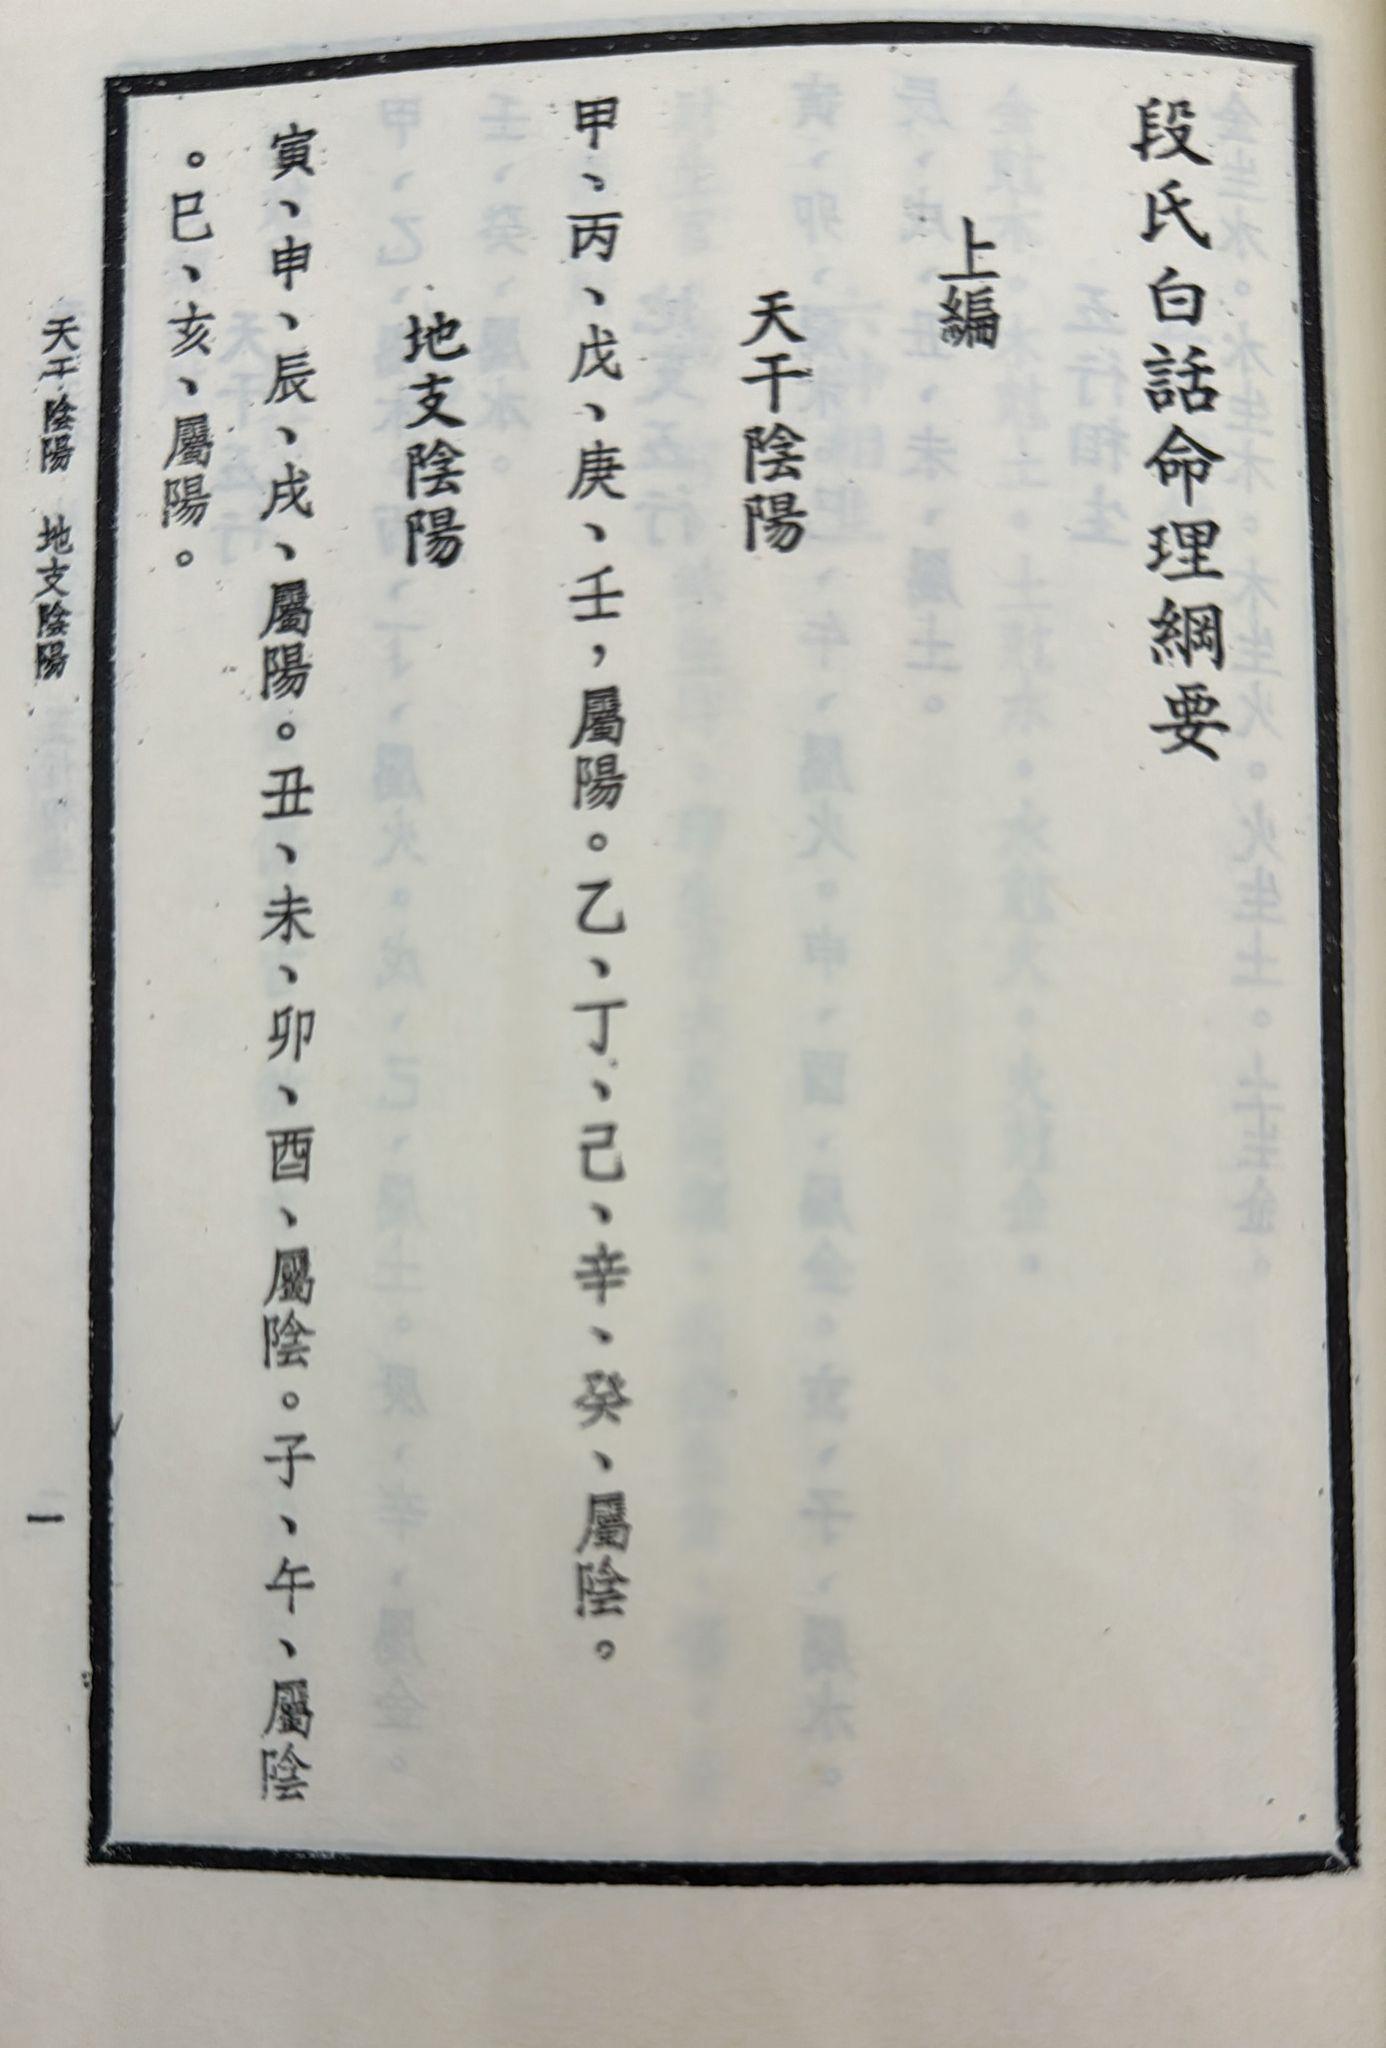 段氏白話命理綱要
上編
天干陰陽
甲、丙、戊、庚、壬，屬陽。乙、丁、己、辛、癸、屬陰。
地支陰陽
寅、申、辰、戌、屬陽。丑、未、卯、酉、屬陰。子、午、屬陰
。巳、亥、屬陽。
天干陰陽　地支陰陽
一